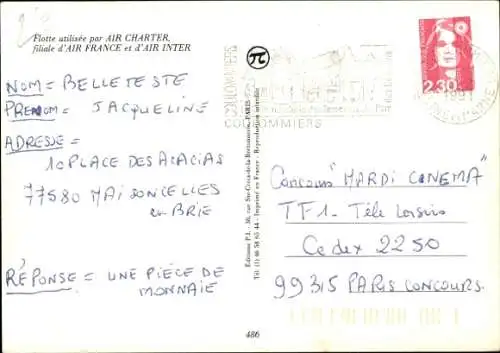 Flotte utilisée par AIR CHARTER,
filiale d'AIR FRANCE et d'AIR INTER
NOM = BELLETESTE
PRENOM = JACQUELINE
ADRESSE =
10 PLACE DES ACACIAS
77580 MAISONCELLES
en BRIE
RÉPONSE = UNE PIÈCE DE
MONNAIE
COULOMMIERS
COULOMMIERS
1991
2,30
Editions P.I. - 36, rue Ste-Croix-de-la-Bretonnerie, PARIS
Imprimé en France - Reproduction interdite
486
Concours "MARDI CINEMA"
TF1 - Télé Loisirs
Cedex 2250
99315 PARIS CONCOURS.